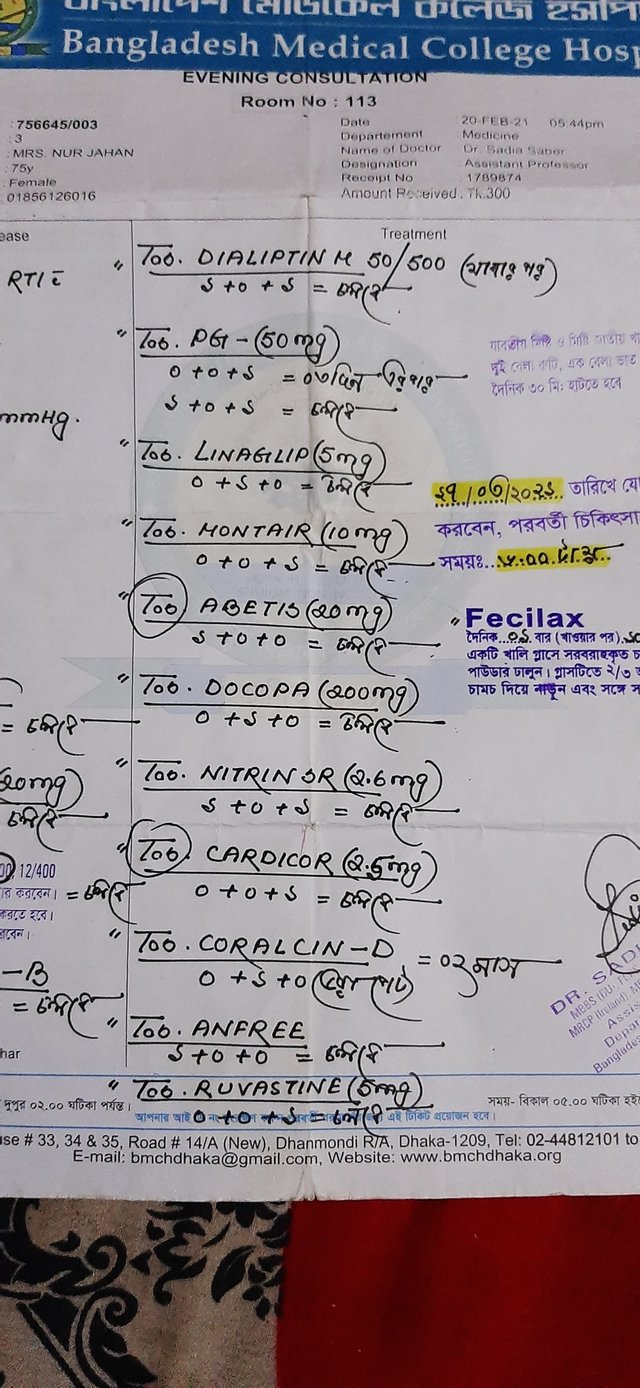 বাংলাদেশ মেডিকেল কলেজ হসপি
Bangladesh Medical College Hosp
EVENING CONSULTATION
Room No : 113
: 756645/003
: 3
: MRS. NUR JAHAN
: 75y
: Female
: 01856126016
Date 20-FEB-21 05:44pm
Departement Medicine
Name of Doctor Dr. Sadia Saber
Designation Assistant Professor
Receipt No : 1789874
Amount Received . Tk.300
ease
Treatment
RTI c̄
mmHg.
" Tab. DIALIPTIN M 50/500 (খাবার পর)
১ + ০ + ১ = চলবে
" Tab. PG - (50mg)
০ + ০ + ১ = ০৩ দিন
১ + ০ + ১ = চলবে
" Tab. LINAGLIP (5mg)
০ + ১ + ০ = চলবে
" Tab. MONTAIR (10mg)
০ + ০ + ১ = চলবে
" Tab ABETIS (20mg)
১ + ০ + ০ = চলবে
" Tab. DOCOPA (200mg)
০ + ১ + ০ = চলবে
" Tab. NITRIN SR (2.6mg)
১ + ০ + ১ = চলবে
" Tab. CARDICOR (2.5mg)
০ + ০ + ১ = চলবে
" Tab. CORALCIN-D
০ + ১ + ০ = ০২ মাস
" Tab. ANFREE
১ + ০ + ০ = চলবে
" Tab. RUVASTINE (5mg)
০ + ০ + ১ = চলবে
দুই বেলা রুটি, এক বেলা ভাত
দৈনিক ৩০ মিঃ হাটতে হবে
তারিখে যো
করবেন, পরবর্তী চিকিৎসা
সময়ঃ
" Fecilax
দৈনিক...০১. বার (খাওয়ার পর)
একটি খালি গ্লাসে সরবরাহকৃত চ
পাউডার ঢালুন। গ্লাসটিতে ২/৩
চামচ দিয়ে নাড়ুন এবং সঙ্গে স
= চলবে
20mg)
চলবে
12/400
ার করবেন। = চলবে
করতে হবে।
রবেন।
-B
= চলবে
har
DR. SADI
MBBS
Assis
Depar
Banglades
দুপুর ০২.০০ ঘটিকা পর্যন্ত।
সময়- বিকাল ০৫.০০ ঘটিকা হই
এই টিকিট প্রয়োজন হবে।
use # 33, 34 & 35, Road # 14/A (New), Dhanmondi R/A, Dhaka-1209, Tel: 02-44812101 to
E-mail: bmchdhaka@gmail.com, Website: www.bmchdhaka.org